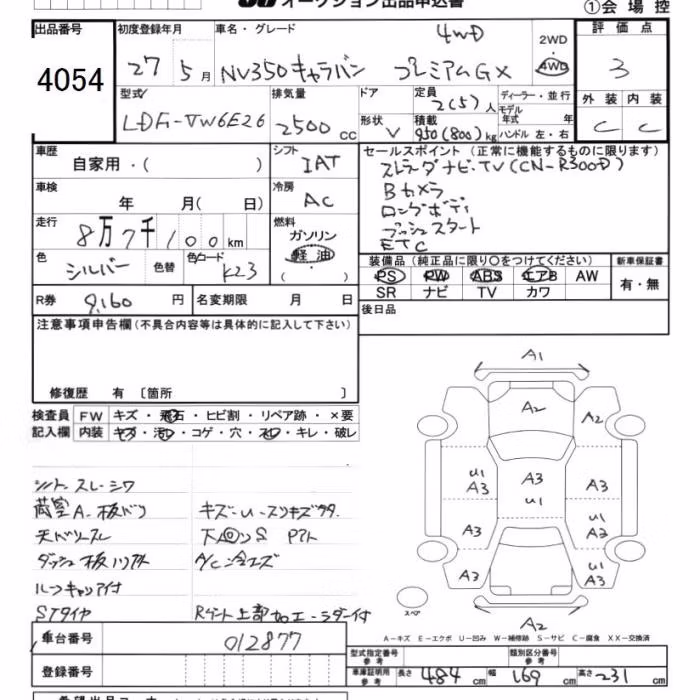 オークション出品申込書
①会場控
出品番号
4054
初度登録年月
27年 5月
車名・グレード
NV350キャラバン プレミアムGX 4WD
2WD・4WD
評価点
3
外装 内装
C C
型式
LDF-VW6E26
排気量
2500 cc
ドア
形状 V
定員
2(5)人
積載
950(800)kg
ディーラー・並行
モデル年式 年
ハンドル 左・右
車歴
自家用・( )
シフト
IAT
セールスポイント (正常に機能するものに限ります)
ストラーダナビ・TV (CN-R300D)
Bカメラ
ロングボディ
プッシュスタート
ETC
車検
年 月( 日)
冷房
AC
走行
8万7千100km
燃料
ガソリン
軽油
( )
色
シルバー
色替
色コード
K23
装備品 (純正品に限り○をつけてください)
PS PW ABS エアB AW
SR ナビ TV カワ
新車保証書
有・無
R券 9,160円
名変期限 月 日
後日品
注意事項申告欄(不具合内容等は具体的に記入して下さい)
修復歴 有 〔箇所 〕
検査員記入欄
FW キズ・飛石・ヒビ割・リペア跡・×要
内装 キズ・汚れ・コゲ・穴・スレ・キレ・破レ
シート スレ・シワ
荷室A・板バリ キズ・U・スリキズ
天バリスレ
ダッシュ板 A/C
ルーフキャリア付
STタイヤ Rゲート上部 ラダー付
A1
A2
A2
U1
A3
A3
U1
A3
A3
U1
A2
A3
U1
A3
A2
スペア
A-キズ E-エクボ U-凹み W-補修跡 S-サビ C-腐食 XX-交換済
車台番号 012877
型式指定番号 参考
類別区分番号 参考
登録番号
車庫証明 参考 長さ 484cm 幅 169cm 高さ 231cm